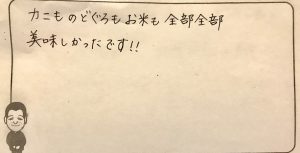 カニも のどぐろも お米も 全部全部
美味しかったです!!